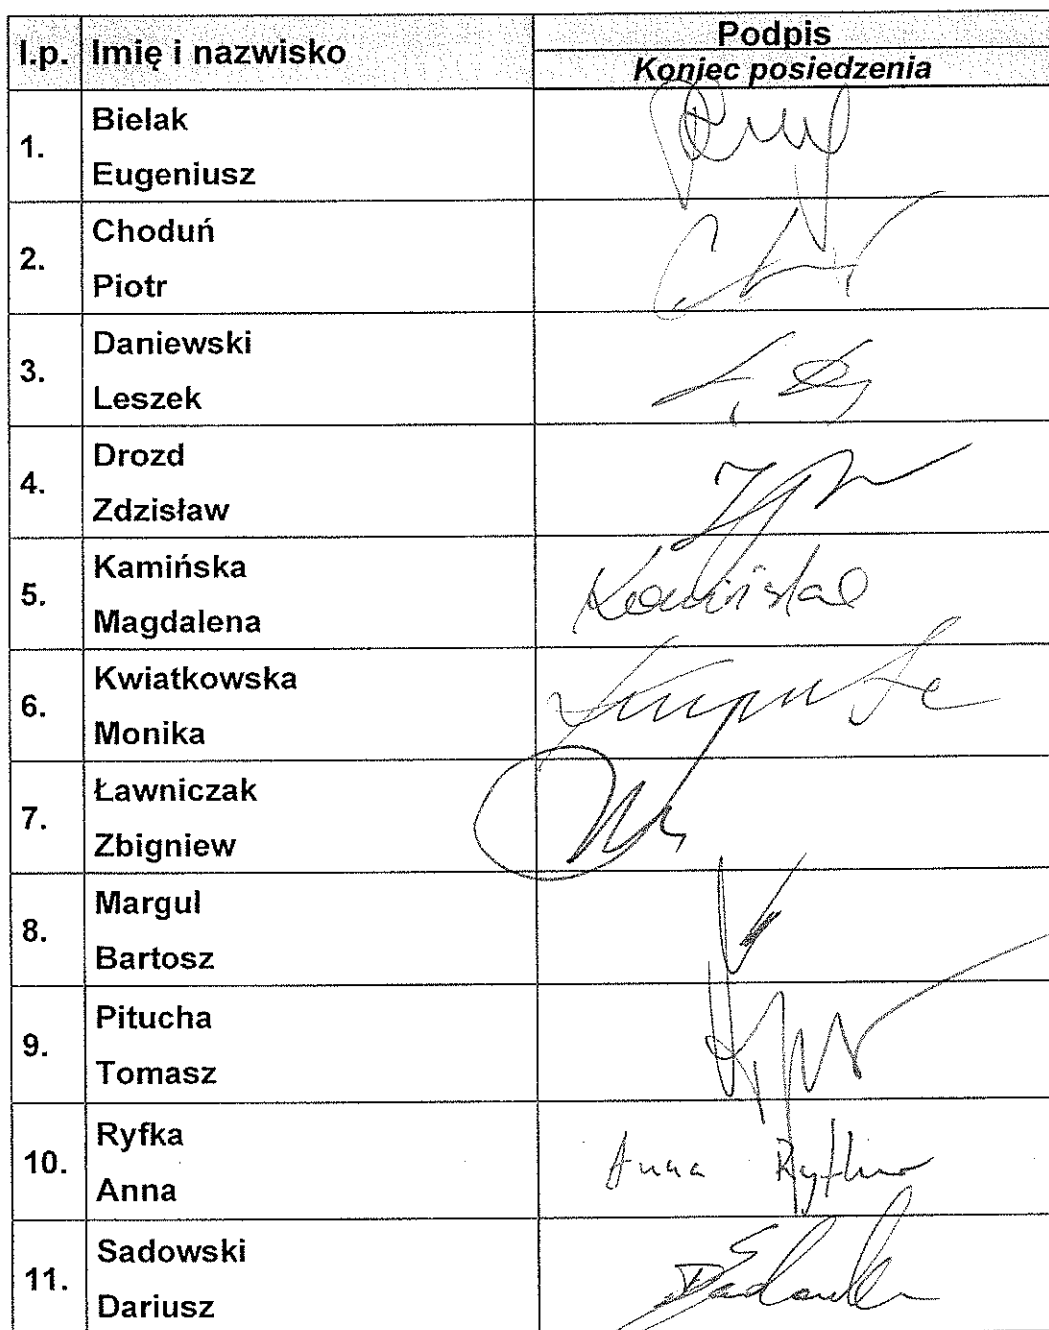 l.p. Imię i nazwisko Podpis
Koniec posiedzenia
1. Bielak
Eugeniusz
2. Choduń
Piotr
3. Daniewski
Leszek
4. Drozd
Zdzisław
5. Kamińska
Magdalena
Kamińska
6. Kwiatkowska
Monika
7. Ławniczak
Zbigniew
8. Margul
Bartosz
9. Pitucha
Tomasz
10. Ryfka
Anna
Anna Ryfka
11. Sadowski
Dariusz